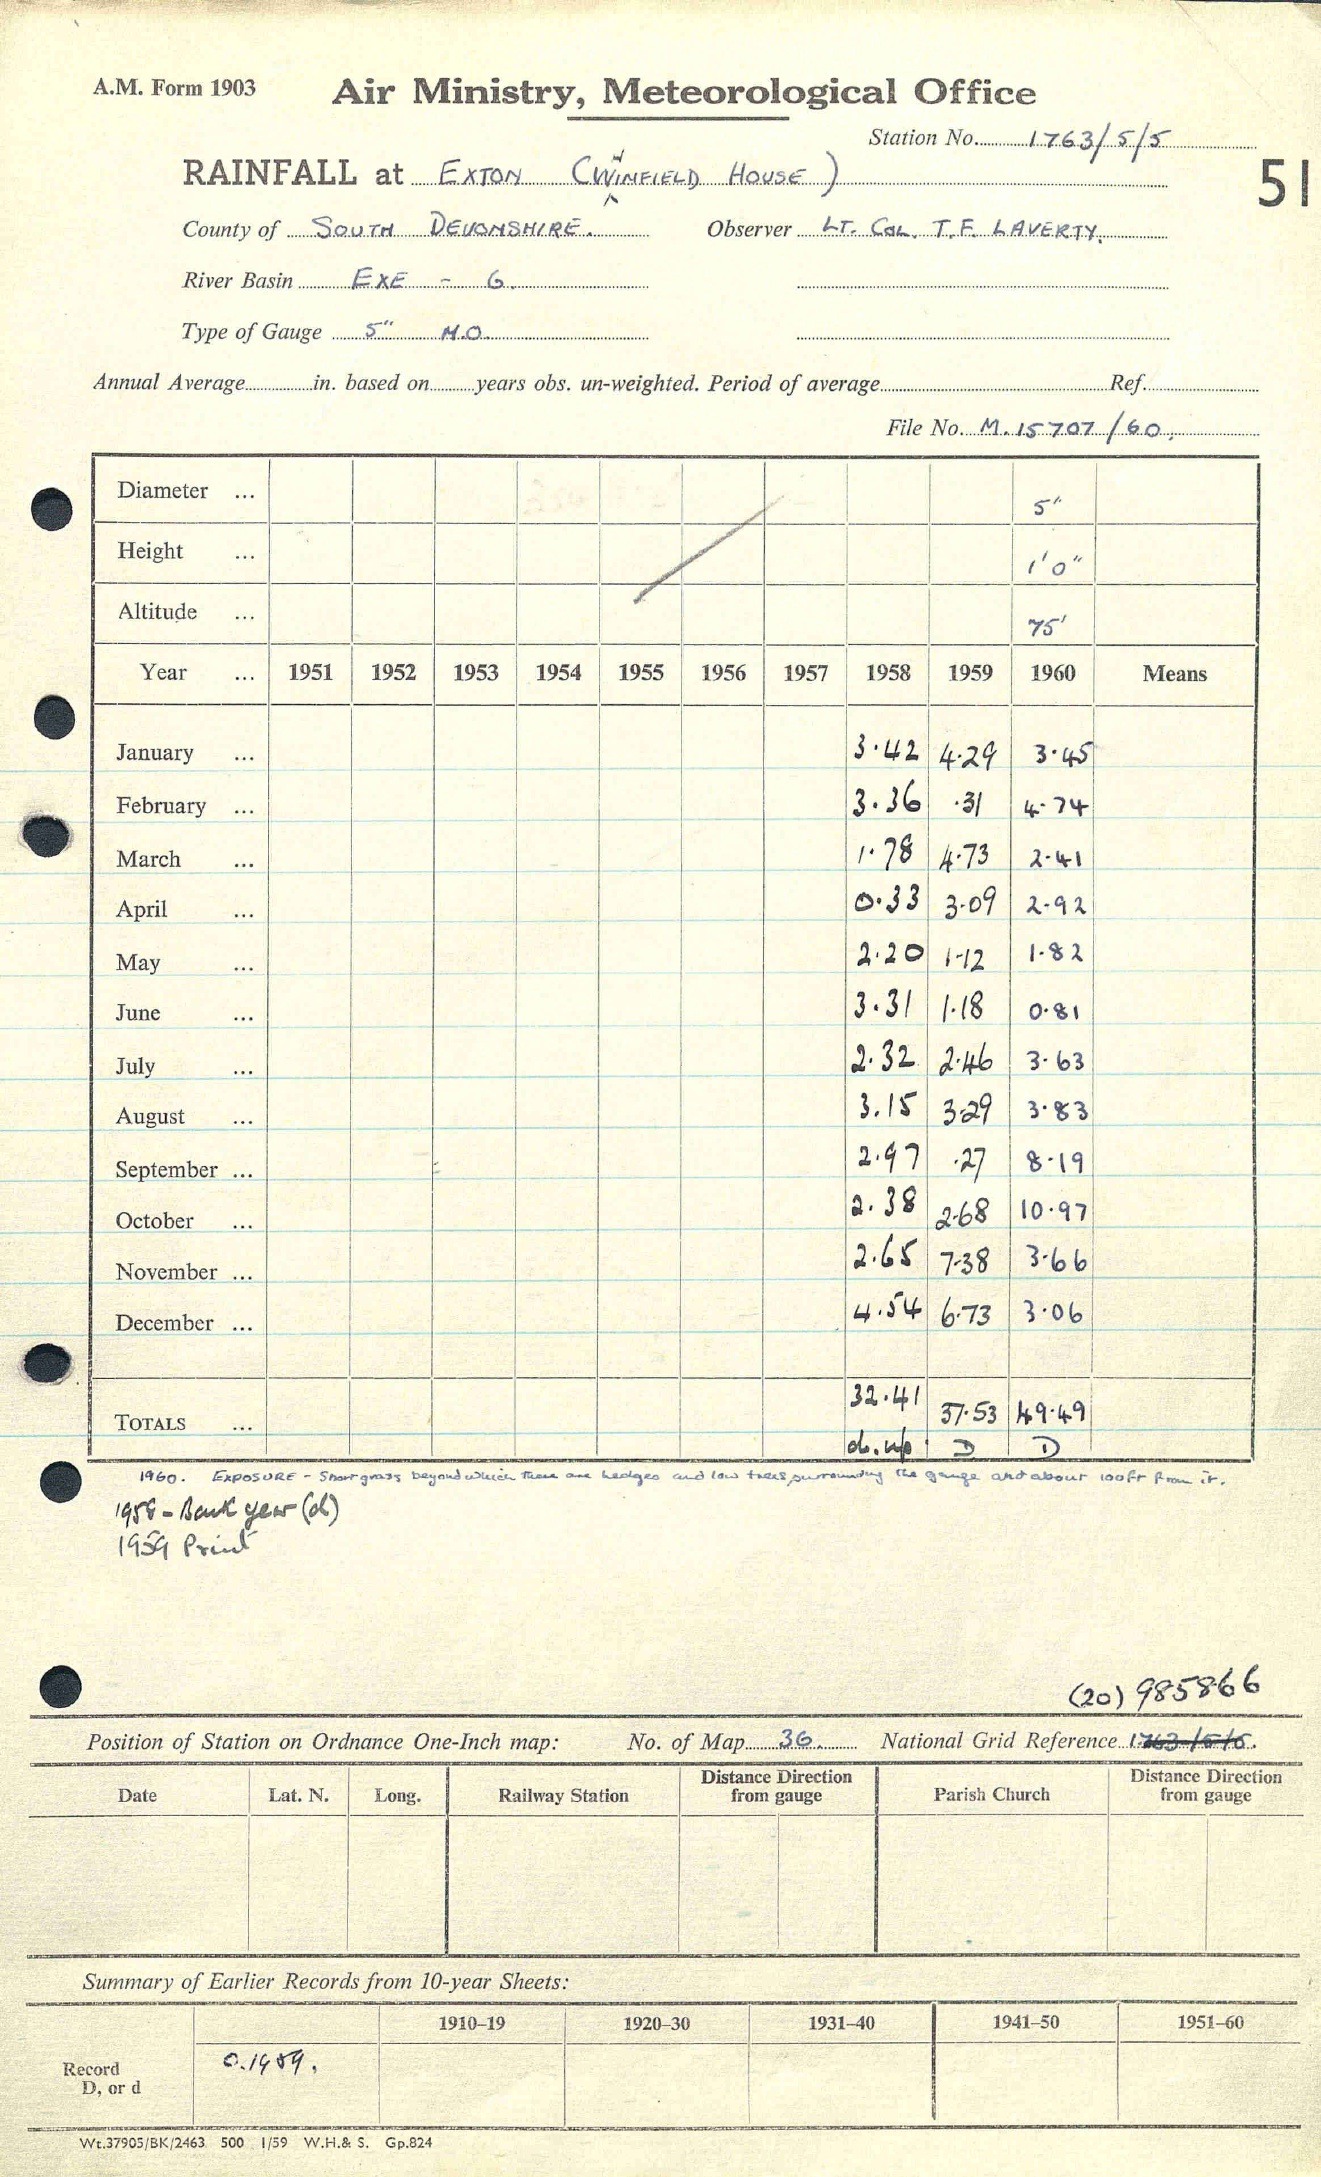 A.M. Form 1903
Air Ministry, Meteorological Office
Station No. 1763/5/5
51
RAINFALL at EXTON (WINFIELD HOUSE)
County of SOUTH DEVONSHIRE. Observer LT. COL. T.F. LAVERTY.
River Basin EXE - 6.
Type of Gauge 5" M.O.
Annual Average in. based on years obs. un-weighted. Period of average Ref.
File No. M.15707/60.
Diameter ... 5"
Height ... 1'0"
Altitude ... 75'
Year ... 1951 1952 1953 1954 1955 1956 1957 1958 1959 1960 Means
January ... 3.42 4.29 3.45
February ... 3.36 .31 4.74
March ... 1.78 4.73 2.41
April ... 0.33 3.09 2.92
May ... 2.20 1.12 1.82
June ... 3.31 1.18 0.81
July ... 2.32 2.46 3.63
August ... 3.15 3.29 3.83
September ... 2.97 .27 8.19
October ... 2.38 2.68 10.97
November ... 2.65 7.38 3.66
December ... 4.54 6.73 3.06
TOTALS ... 32.41 37.53 49.49
d. n/p D D
1960. EXPOSURE - Short grass beyond which there are hedges and low trees, surrounding the gauge and about 100ft from it.
1958 - Book year (d)
1959 Print
(20) 985866
Position of Station on Ordnance One-Inch map: No. of Map 36. National Grid Reference 1763/5/5.
Date Lat. N. Long. Railway Station Distance Direction from gauge Parish Church Distance Direction from gauge
Summary of Earlier Records from 10-year Sheets:
1910–19 1920–30 1931–40 1941–50 1951–60
Record D, or d 0.1959.
Wt.37905/BK/2463 500 1/59 W.H.& S. Gp.824